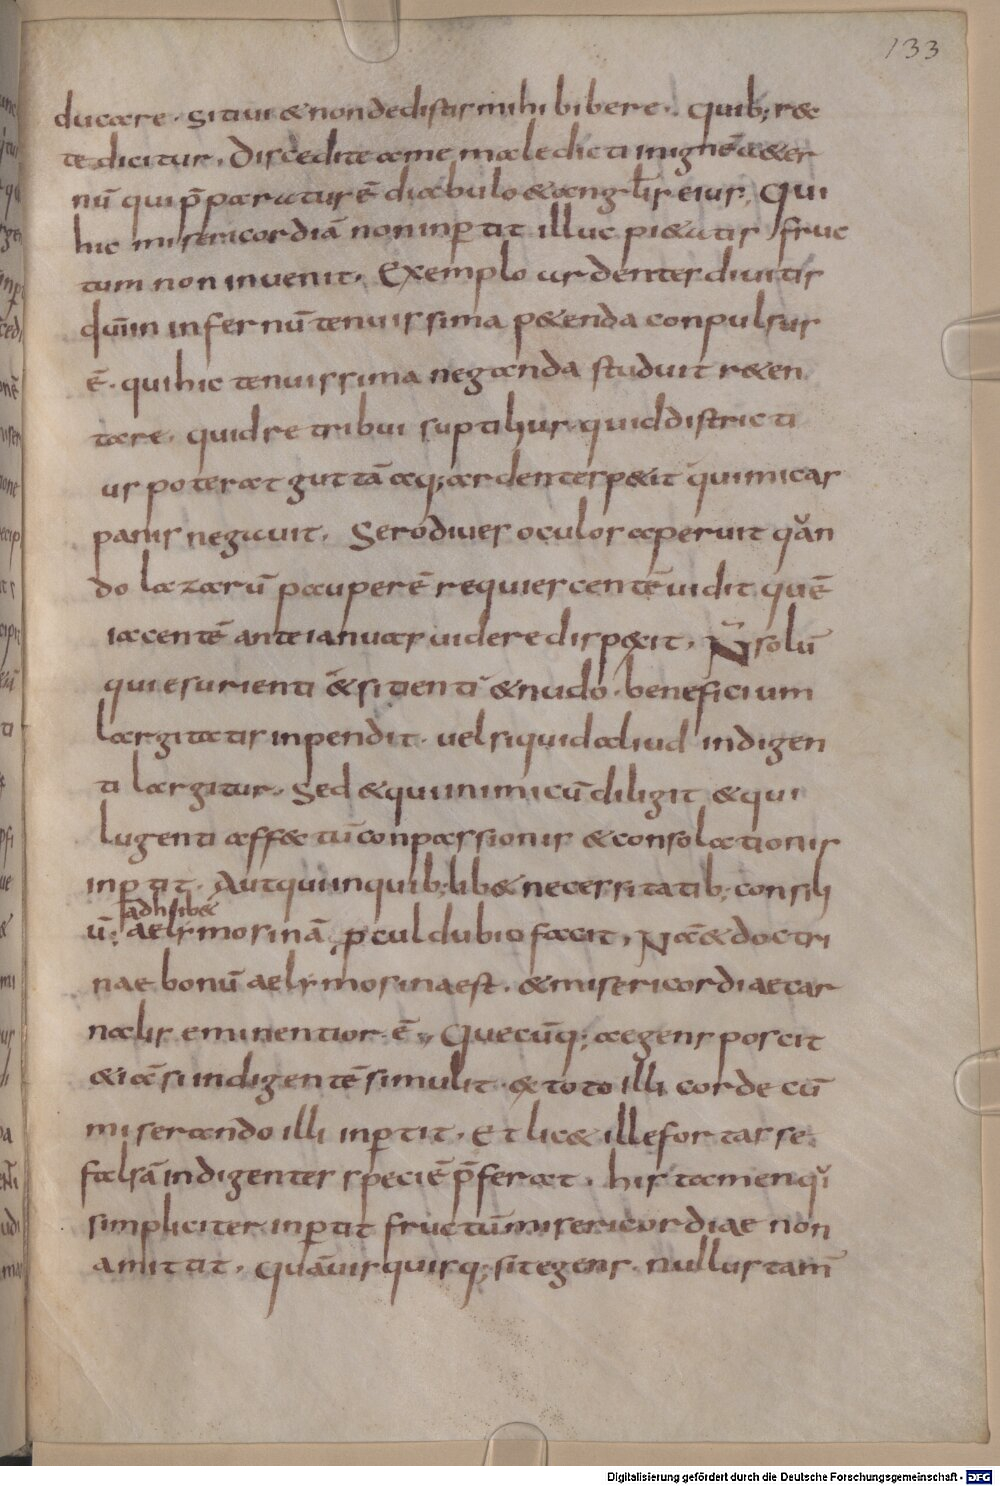 133
ducare. Sitiui & nondedistis mihi bibere. Quib; rec
te dicitur. Discedite a me maledicti in ignē & aeter
nū qui p̄paratus ē diabulo & angłis eius. Qui
hic misericordiā non inꝑtit illuc pi&atis fruc
tum non inuenit. Exemplo ardentes diuitis
qui in infernū tenuissima p&enda conpulsus
ē. qui hic tenuissima neganda studuit r&en
tare. quid retribui suptilius quid districti
us poterat guttā aq; ardentes p&iit qui micas
panis negauit. Sero diues oculos aperuit quan
do lazarū pauperē requiescentē uidit. quē
iacentē ante ianuas uidere dispexit. N̄ solū
qui esurienti & sitienti & nudo. beneficium
largitatis inpendit. uel si quid aliud indigen
ti largitur. Sed & qui inimicū diligit & qui
lugenti affectū conpassionis & consolationis
inꝑtit. Aut qui in quib; lib& necessitatib; consili
adhib&
ū; aelymosinā ꝓcul dubio facit. Nā & doctri
nae bonū aelymosina est. & misericordiae car
nalis eminentior ē. Quecūq; aegens poscit
& iā si indigentē simulit. & toto illi corde cū
miserando illi inꝑtit. Et lic& ille fortasse
falsā indigentes speciē p̄ferat. his tamen qui
simpliciter inꝑtit fructū misericordiae non
amittit. Quāuis quisq; sit egens. nullus tam̄
Digitalisierung gefördert durch die Deutsche Forschungsgemeinschaft - DFG